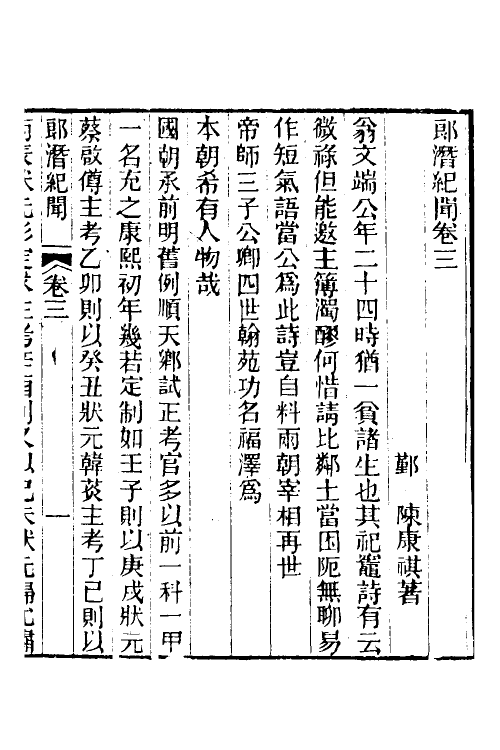 郎潛紀聞卷三
鄞 陳康祺著
翁文端公年二十四時猶一貧諸生也其祀竈詩有云
微祿但能邀主簿濁醪何惜請比鄰士當困阨無聊易
作短氣語當公爲此詩豈自料兩朝宰相再世
帝師三子公卿四世翰苑功名福澤爲
本朝希有人物哉
國朝承前明舊例順天鄉試正考官多以前一科一甲
一名充之康熙初年幾若定制如壬子則以庚戌狀元
蔡啟僔主考乙卯則以癸丑狀元韓菼主考丁巳則以
郎潛紀聞 卷三 一